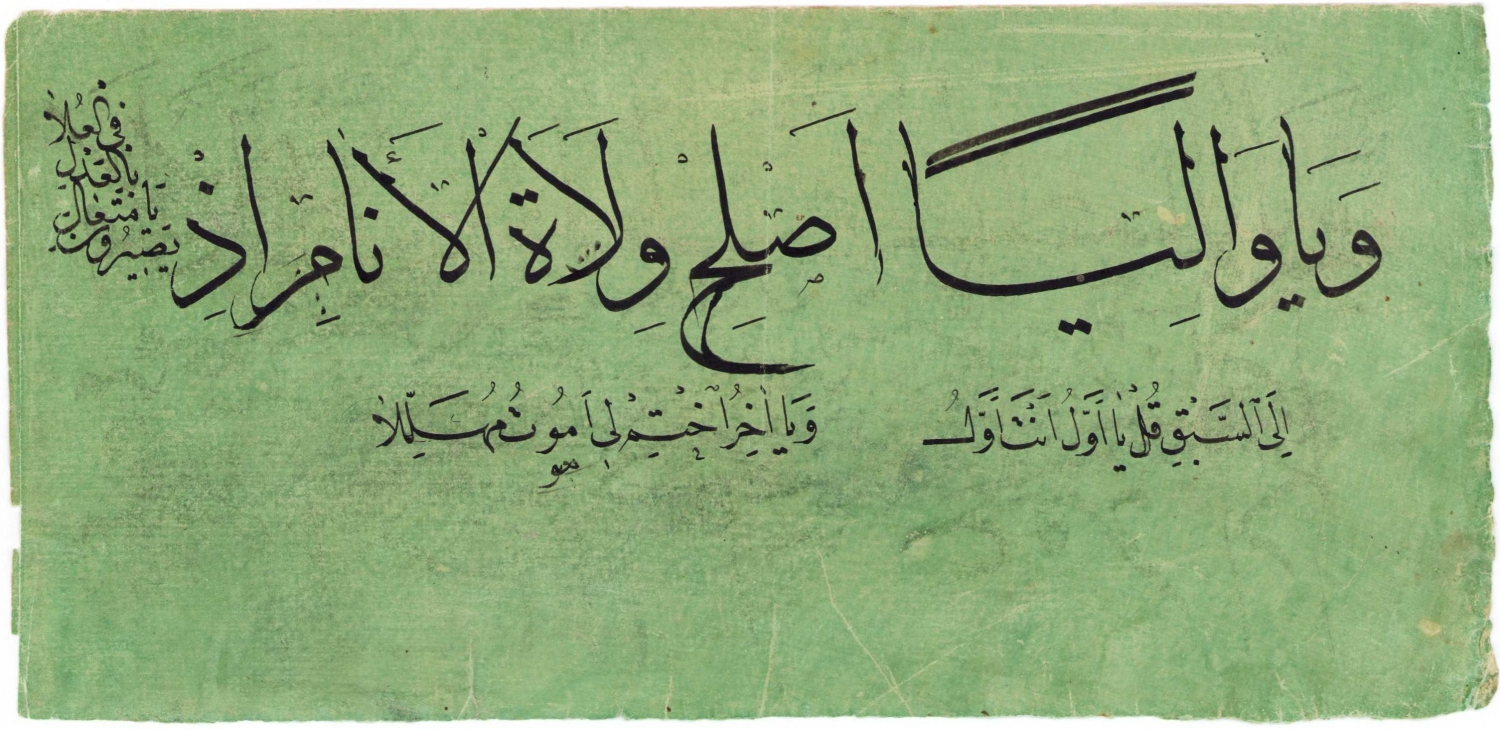 وَيَا وَالِيًا اَصْلِحْ وِلَاةَ الْأَنَامِ اِذْ
يَصِيرُونَ
يَا مُتَعَالِ
بِالْعَدْلِ
فِي الْعُلَا
اِلَى السَّبْقِ قُلْ يَا اَوَّلُ اَنْتَ اَوَّلُ
وَيَا اٰخِرُ اخْتِمْ لِي اَمُوتُ مُهَلِّلًا